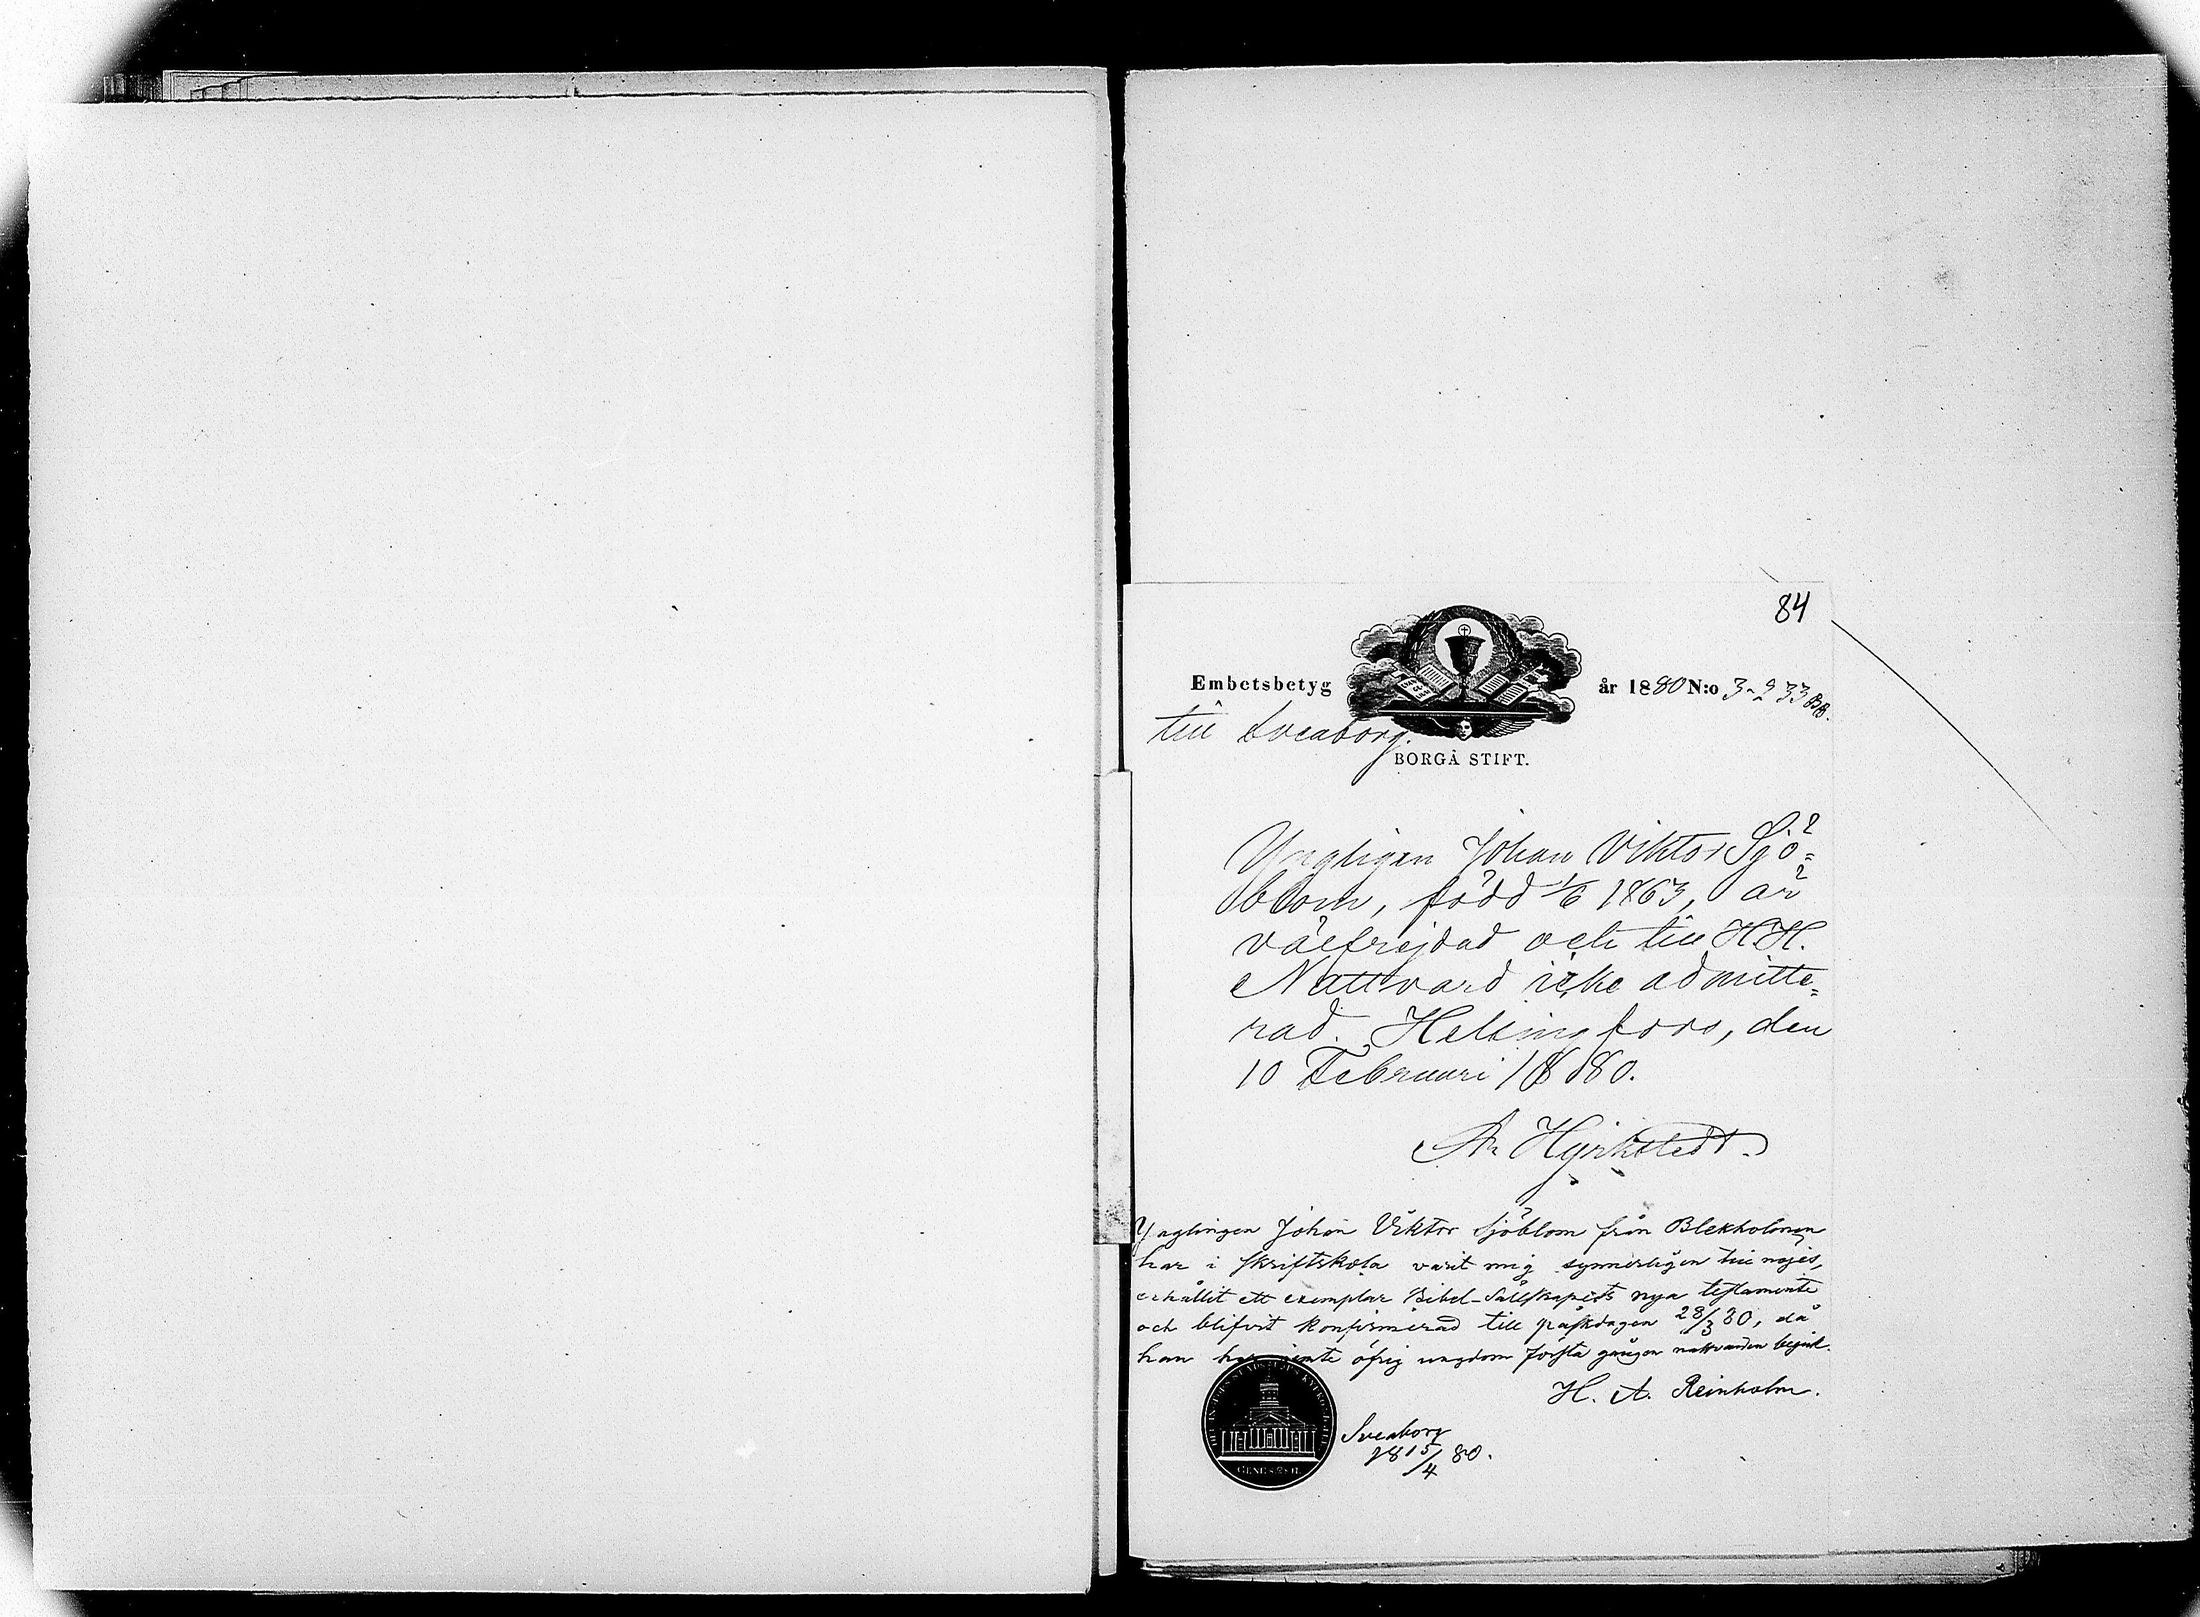 84
Embetsbetyg år 1880 N:o
till Sveaborg.
BORGÅ STIFT.
Yngligen Johan Viktor Sjö=
blom, född 1/6 1863, är
välfrejdad och till H.H.
Nattvard icke admitte=
rad. Helsingfors, den
10 Februari 1880.
Ynglingen Johan Viktor Sjöblom från Blekholmen
har i skriftskola varit mig synnerligen till nöjes,
erhållit ett exemplar Bibel-Sällskapets nya testamente
och blifvit konfirmerad till påskdagen 28/3 80, då
han har jemte öfrig ungdom första gången nattvarden begått.
H. A. Reinholm.
Sveaborg
18 15/4 80.